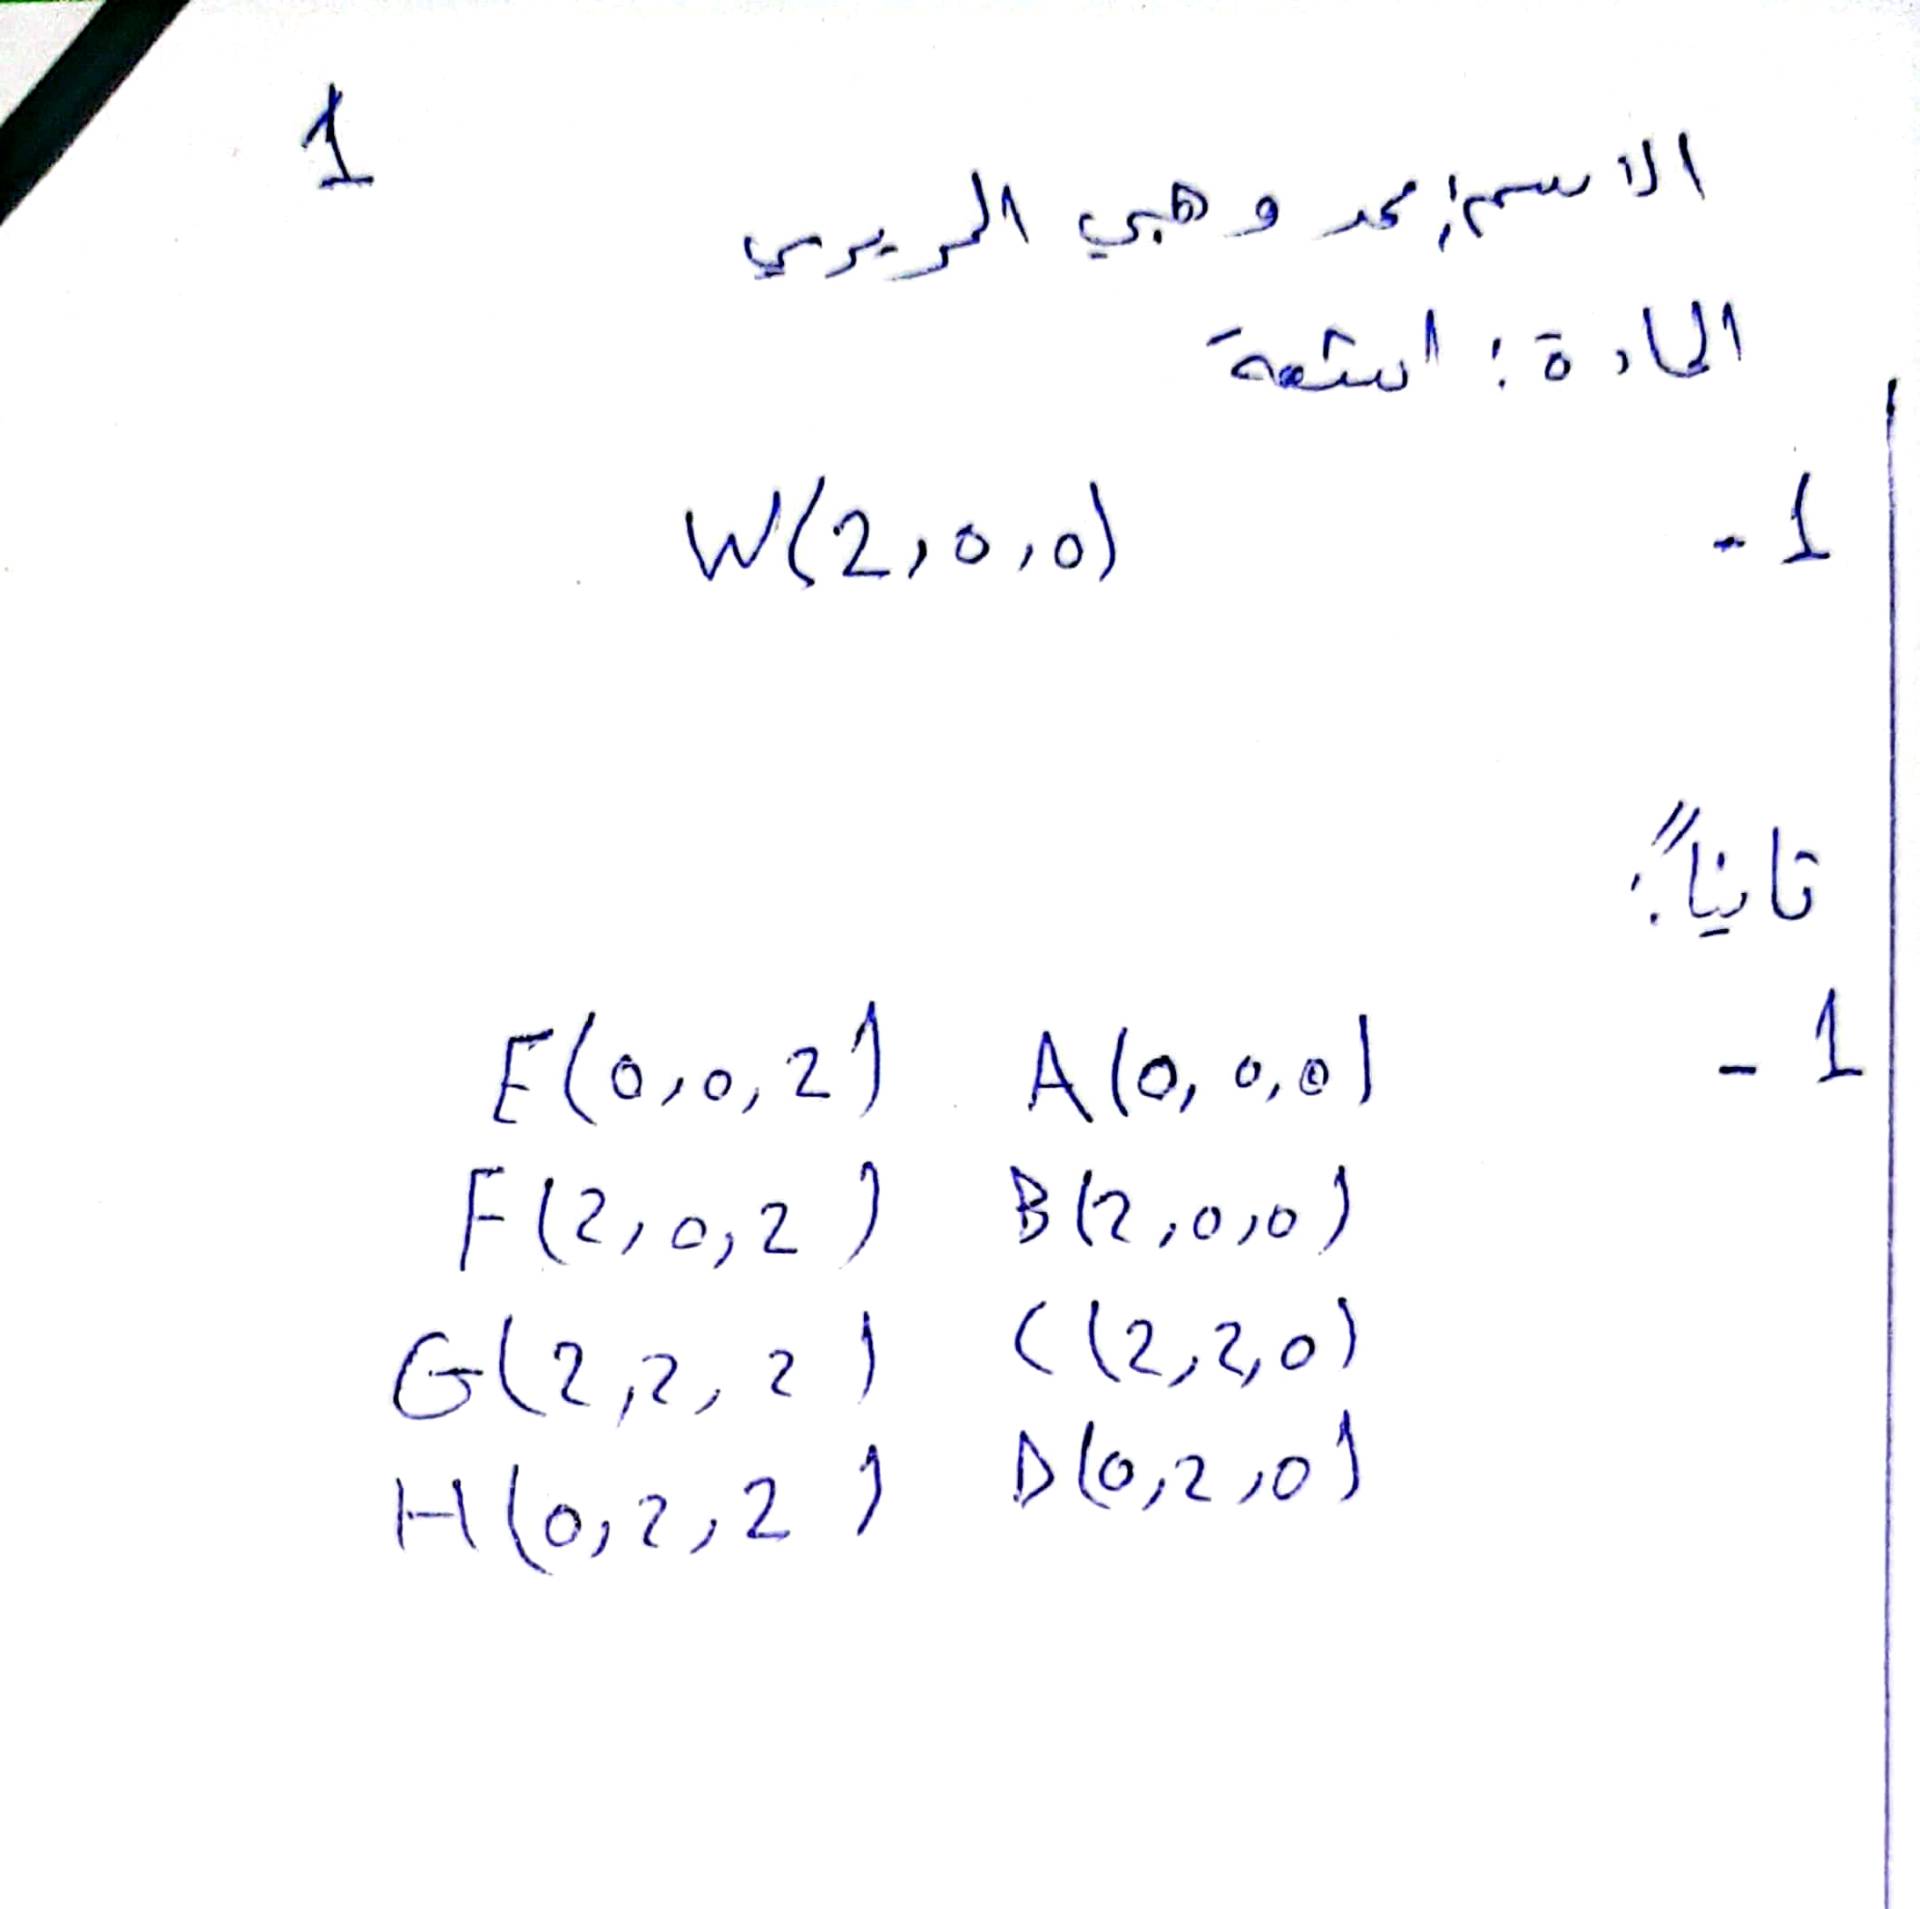 1
الاسم: محمد وهبي الريري
المادة: اشعة
1 - W(2,0,0)
تانياً:
1 - A(0,0,0) E(0,0,2)
B(2,0,0) F(2,0,2)
C(2,2,0) G(2,2,2)
D(0,2,0) H(0,2,2)